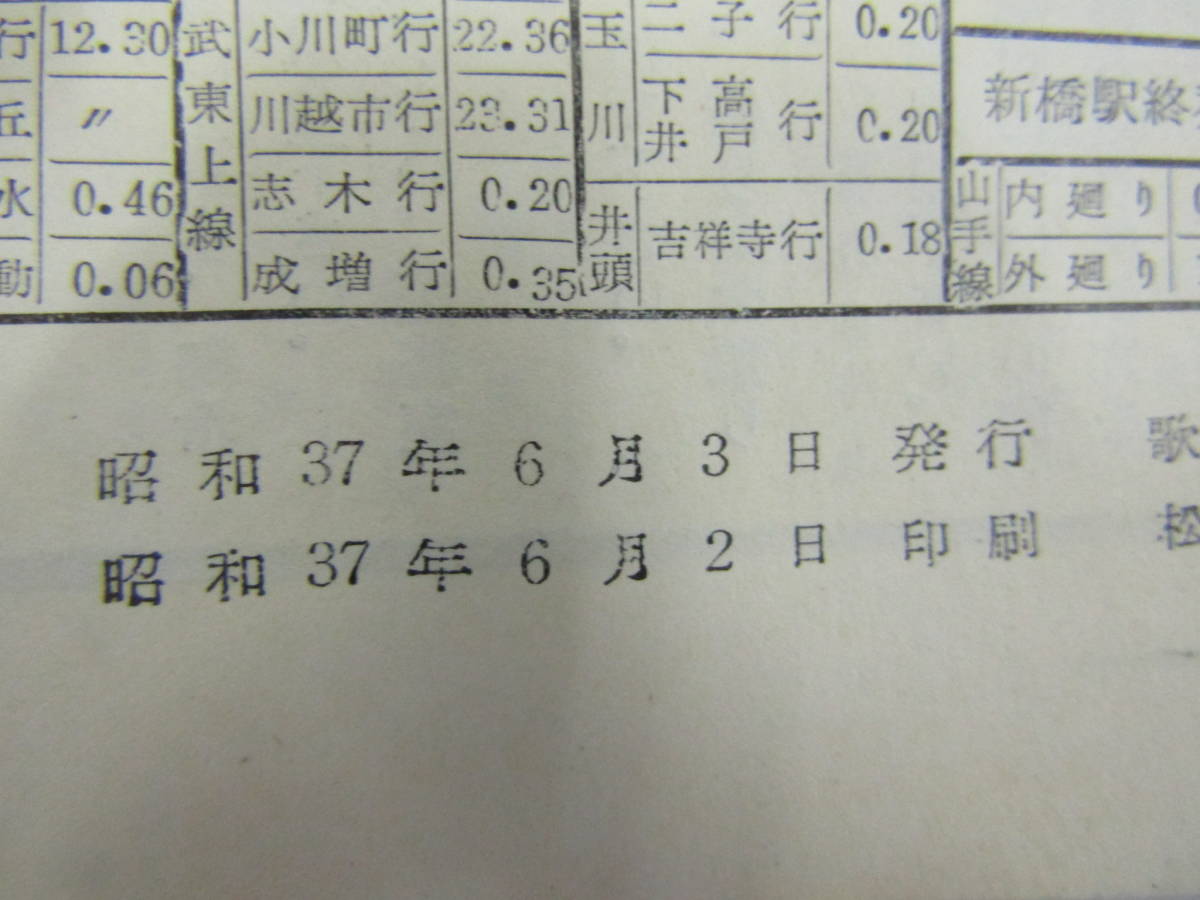 行 12.30 武東上線 小川町行 22.36 玉川 二子行 0.20
丘 〃 川越市行 23.31 下高井戸行 0.20 新橋駅終
水 0.46 志木行 0.20 井頭 吉祥寺行 0.18 山手線 内廻り
動 0.06 成増行 0.35 外廻り
昭和37年6月3日発行 歌
昭和37年6月2日印刷 松